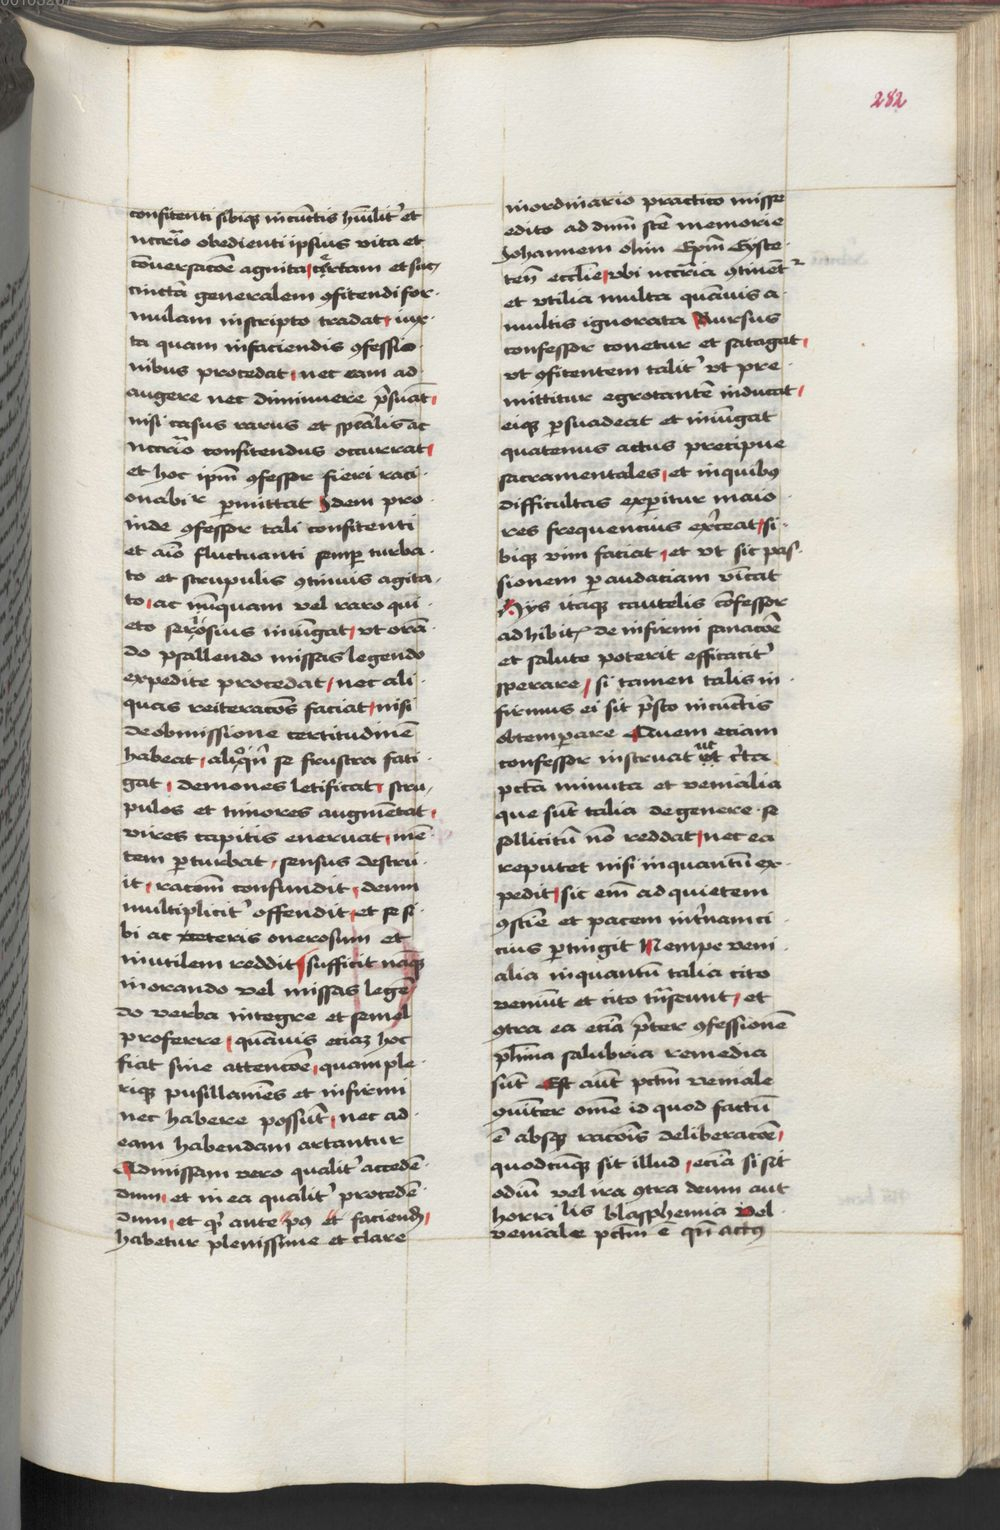 282
confitenti sibiqꝫ in cūctis hūilit᷑ et
nccr̄io obedienti ipsius vita et
cōuersacōe agnita certam et suc
cinctā generalem ꝯfitendi for-
mulam in scripto tradat iux-
ta quam in faciendis ꝯfessio-
nibus procedat nec eam ad-
augere nec diminuere p̄suāt
nisi casus rarus et spēalis ac
nccr̄io confitendus occurrat
et hoc ipm̄ ꝯfessor fieri raci-
onabir permittat Idem pro-
inde ꝯfessor tali confitenti
et aīo fluctuanti semꝑ turba-
to et scrupulis ꝯtinuis agita-
to ac nūquam vel raro qui-
eto seriosius iniūgat vt orā-
do psallendo missas legendo
expedite procedat nec ali-
quas reiteracōes faciat nisi
de obmissione certitudinē
habeat alioqn̄ se frustra fati-
gat demones letificat scru-
pulos et timores augmētat
vires capitis eneruat mē-
tem ꝑturbat sensus destru-
it racōem confundit deum
multiplicit᷑ offendit et se si-
bi ac ceteris onerosum et
inutilem reddit sufficit nāqꝫ
in orando vel missas legē-
do verba integre et semel
proferre quāuis eciaꝫ hoc
fiat sine attencōe quam ple-
riqꝫ pusillanimes et infirmi
nec habere possūt nec ad
eam habendam artantur
Ad missam vero qualit᷑ accedē-
dum et in ea qualit᷑ procedē-
dum et qͥ ante pꝰ et faciendꝫ
habetur plenissime et clare
in ordinario practico misse
edito ad dnm̄ scē memorie
Johannem olim Ep̄m Eyste-
ten̄ ecclīe vbi nccr̄ia ꝯtinent᷑
et vtilia multa quāuis a
multis ignorata Rursus
confessor conetur et satagat
vt ꝯfitentem talit᷑ vt pre-
mittitur egrotantē inducat
eiqꝫ ꝑsuadeat et iniūgat
quatenus actus precipue
sacramentales et in quibꝰ
difficultas experitur maio-
res frequencius exerceat si-
biqꝫ vim faciat et vt sic pas-
sionem ꝑ audaciam vīcat
Hys itaqꝫ cautelis cōfessor
adhibitꝭ de infirmi sanacōe
et salute poterit efficacit᷑
sperare si tamen talis in-
firmus ei sit p̄sto in cūctis
obtemperare Quem eciam
confessor instruat vt circa
pctā minuta et venialia
que sūt talia de genere se
sollicitū nō reddat nec ea
reputet nisi in quantū ex-
pedit sic em̄ ad quietem
ꝯsciē et pacem int᷑nam ci-
cius ꝑtingit Nempe veni-
alia in quantū talia cito
veniūt et cito tn̄seunt et
ꝯtra ea eciā p̄ter ꝯfessionē
plīma salubria remedia
sūt Est aūt pctm̄ veniale
ꝯmūiter omē id quod factū
ē absqꝫ racōis deliberacōe
quodcūqꝫ sit illud eciā si sit
odiū vel ira ꝯtra deum aut
horribilis blasphemia Vel
veniale pctm̄ ē qn̄ actꝰ